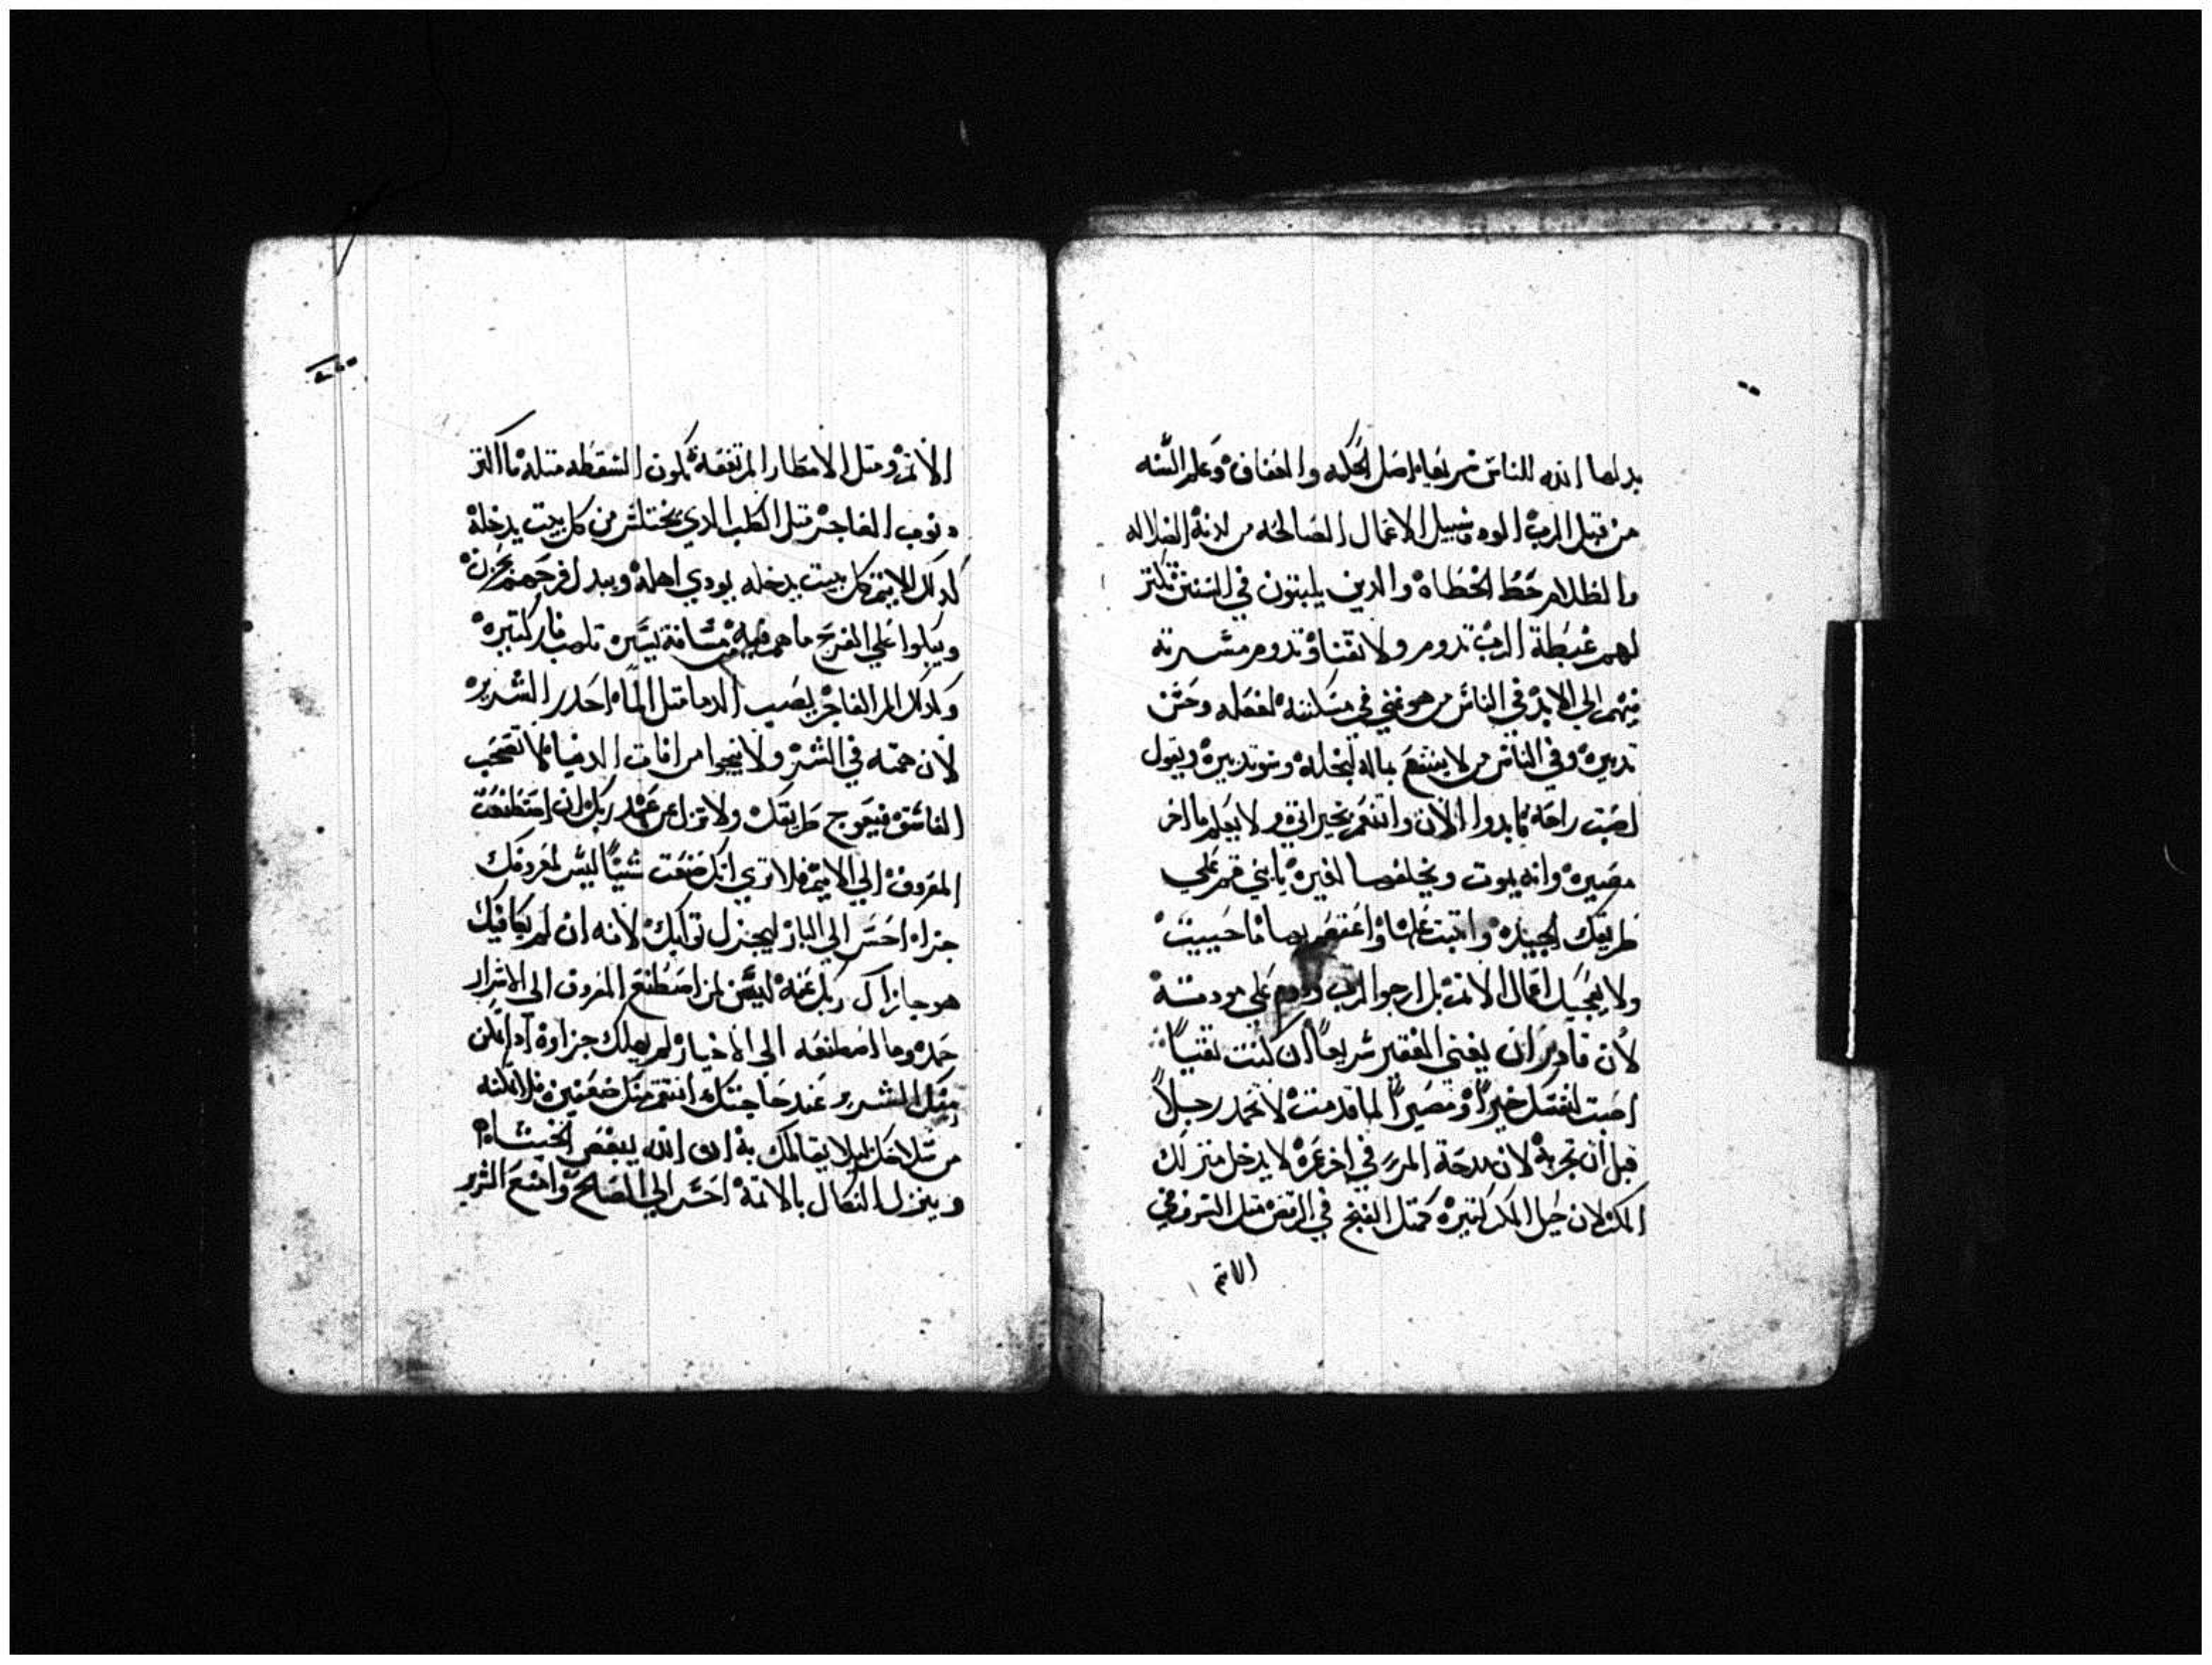 بدلها الله للناس سريعا اصل الحكمه والعفاف وعلم السنه
من قبل الرب الود وسبيل الاعمال الصالحه من لدنه الضلاله
والظلام حظ الخطاه والدين يلبتون في السنن تكتر
لهم غبطة الرب تدوم ولا تفنا وتدوم مسرته
فيهم الي الابد في الناس من هو غني في مسكنته لفعله وحسن
تدبيره وفي الناس من لا ينتفع بماله لبخله وسو تدبيره ويقول
اصبت راحه فابدوا الان واتنعم بخيراتي ولا يعلم ما اخر
مصيره وانه يموت ويخلفها لغيره يا بني قم علي
طريقتك الجيده واتبت عليها واعتصم بها ما حييت
ولا يعجبك اعمال الاتمه بل ارجوا الرب ودوم علي مودته
لان قادر ان يغني الفقير سريعاً ان كنت تقياً
اصبت لنفسك خيراً ومصيراً لما قدمت لا تحمد رجلاً
قبل ان تجربه لان مدحة المرء في اخر عمره لا يدخل منزلك
المكر لان حيل المكر كتيره كمتل القبج في القفص متل السرور في
الاتم
الاتم ومتل الامطار المرتفعة تكون السقطه متله ما اكتر
دنوب الفاجر متل الكلب الدي يختلس من كل بيت يدخله
كدلك الاتيم كل بيت يدخله يودي اهله ويبدل فرحهم بحزن
ويبكوا علي الفرح ما هم فيه من يسيره تلهب نار كتيره
وكدلك المر الفاجر يصب الدما متل الماه احدر الشرير
لان همته في الشر ولا ينجوا من افات الدنيا لا تصحب
الفاسق فيعوج طريقك ولا تزل عن عهد ربك ان اصطنعت
المعروف الي الاتيم فلا تري انك صنعت شيًا ليس لمعروفك
جزاء احسن الي البار ليجزل توابك لانه ان لم يكافيك
هو جازاك ربك عنه ليس لمن اصطنع المعروف الي الاشرار
حمد وما اصطنعه الي الاخيار لم يهلك جزاوه
الشرير عند حاجتك انتقم منك ضعفين فلا تمكنه
من سلاحك ليلا يقاتلك به ان الله يبغض الخبيثاء
وينزل النكال بالاتمة احسن الي الصلح وامنع الشرير